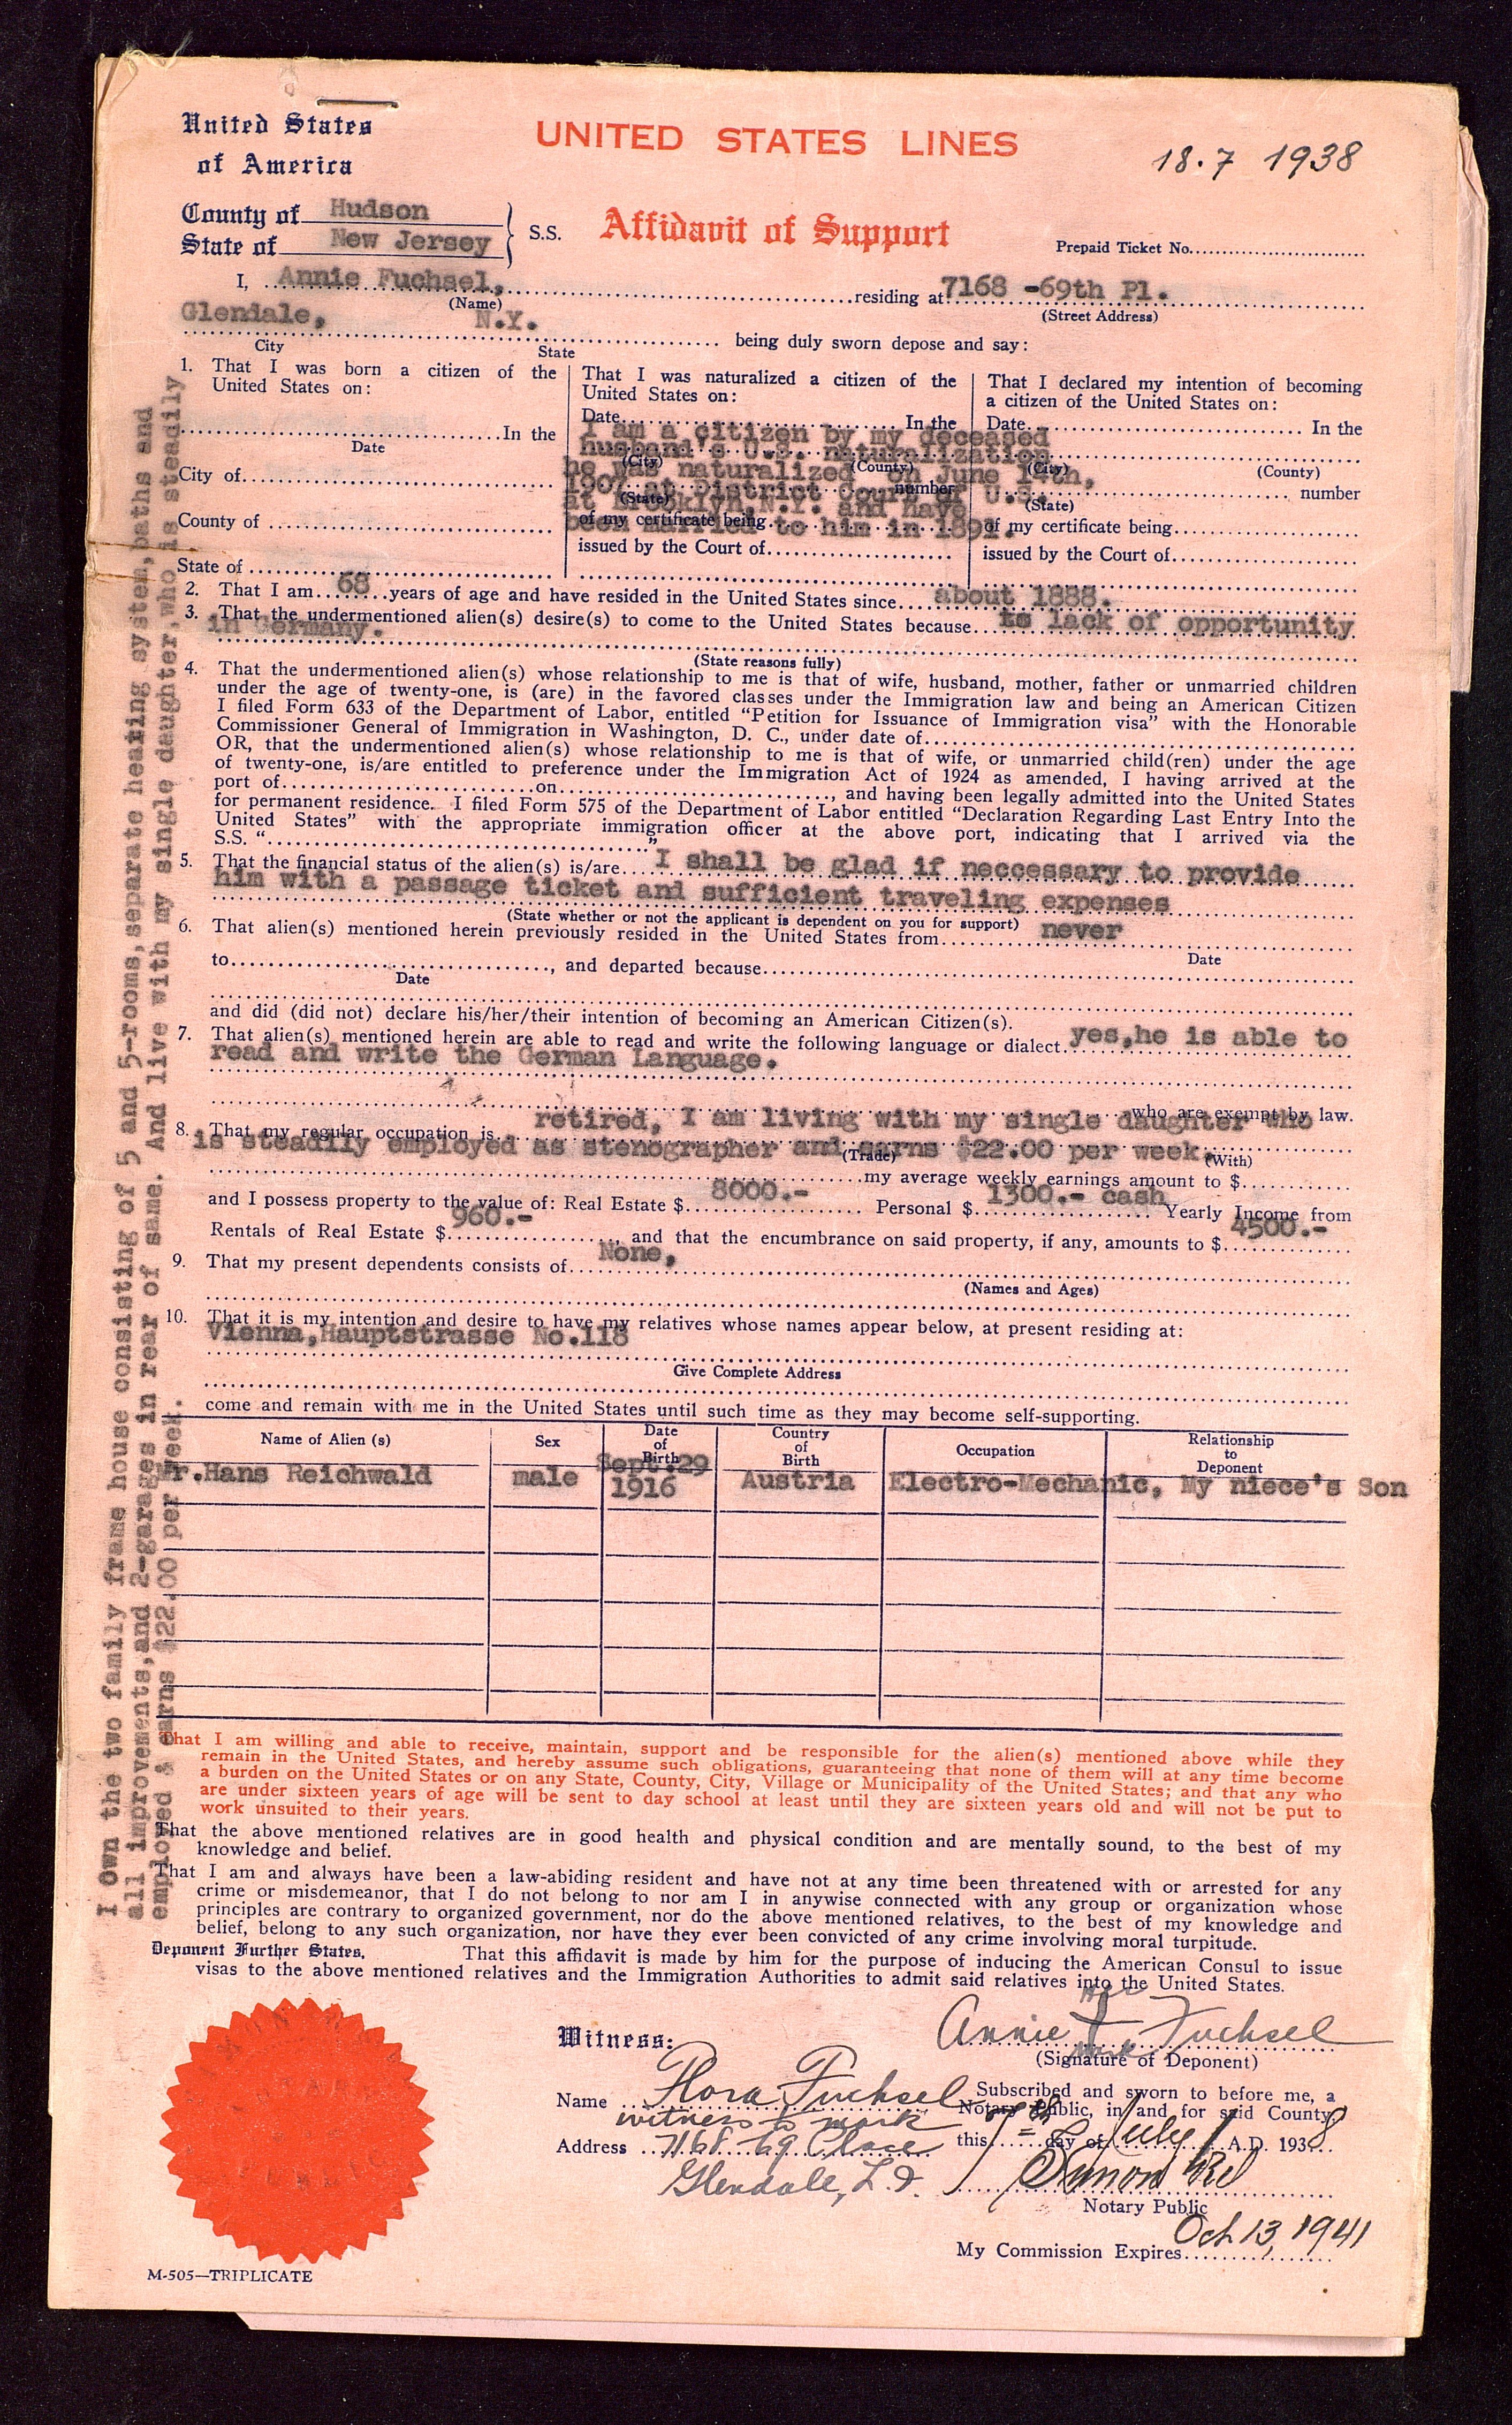 United States
of America
UNITED STATES LINES
18.7 1938
County of Hudson
State of New Jersey
S.S.
Affidavit of Support
Prepaid Ticket No.
I, Annie Fuchsel, residing at 7168 -69th Pl.
(Name)
(Street Address)
Glendale, N.Y. being duly sworn depose and say:
City State
1. That I was born a citizen of the
United States on:
In the
Date
City of
County of
State of
That I was naturalized a citizen of the
United States on:
Date In the
I am a citizen by my deceased
husband's U.S. naturalization
(City) (County)
he was naturalized on June 14th,
1907 at District Court of U.S.
(State) number
at Brooklyn, N.Y. and have
of my certificate being
been married to him in 1891.
issued by the Court of
That I declared my intention of becoming
a citizen of the United States on:
Date In the
(City) (County)
number
(State)
of my certificate being
issued by the Court of
2. That I am 68 years of age and have resided in the United States since about 1888.
3. That the undermentioned alien(s) desire(s) to come to the United States because to lack of opportunity
in Germany.
(State reasons fully)
4. That the undermentioned alien(s) whose relationship to me is that of wife, husband, mother, father or unmarried children
under the age of twenty-one, is (are) in the favored classes under the Immigration law and being an American Citizen
I filed Form 633 of the Department of Labor, entitled “Petition for Issuance of Immigration visa” with the Honorable
Commissioner General of Immigration in Washington, D. C., under date of
OR, that the undermentioned alien(s) whose relationship to me is that of wife, or unmarried child(ren) under the age
of twenty-one, is/are entitled to preference under the Immigration Act of 1924 as amended, I having arrived at the
port of on , and having been legally admitted into the United States
for permanent residence. I filed Form 575 of the Department of Labor entitled “Declaration Regarding Last Entry Into the
United States” with the appropriate immigration officer at the above port, indicating that I arrived via the
S.S. “ ”
5. That the financial status of the alien(s) is/are I shall be glad if neccessary to provide
him with a passage ticket and sufficient traveling expenses
(State whether or not the applicant is dependent on you for support)
6. That alien(s) mentioned herein previously resided in the United States from never
Date
to , and departed because
Date
and did (did not) declare his/her/their intention of becoming an American Citizen(s).
7. That alien(s) mentioned herein are able to read and write the following language or dialect yes,he is able to
read and write the German Language.
who are exempt by law.
8. That my regular occupation is retired, I am living with my single daughter who
is steadily employed as stenographer and earns $22.00 per week.
(Trade) (With)
my average weekly earnings amount to $
and I possess property to the value of: Real Estate $ 8000.- Personal $ 1300.- cash Yearly Income from
Rentals of Real Estate $ 960.- , and that the encumbrance on said property, if any, amounts to $ 4500.-
9. That my present dependents consists of None,
(Names and Ages)
10. That it is my intention and desire to have my relatives whose names appear below, at present residing at:
Vienna,Hauptstrasse No.118
Give Complete Address
come and remain with me in the United States until such time as they may become self-supporting.
Name of Alien (s) Sex Date of Birth Country of Birth Occupation Relationship to Deponent
Mr.Hans Reichwald male Sept.29 1916 Austria Electro-Mechanic, My niece's Son
That I am willing and able to receive, maintain, support and be responsible for the alien(s) mentioned above while they
remain in the United States, and hereby assume such obligations, guaranteeing that none of them will at any time become
a burden on the United States or on any State, County, City, Village or Municipality of the United States; and that any who
are under sixteen years of age will be sent to day school at least until they are sixteen years old and will not be put to
work unsuited to their years.
That the above mentioned relatives are in good health and physical condition and are mentally sound, to the best of my
knowledge and belief.
That I am and always have been a law-abiding resident and have not at any time been threatened with or arrested for any
crime or misdemeanor, that I do not belong to nor am I in anywise connected with any group or organization whose
principles are contrary to organized government, nor do the above mentioned relatives, to the best of my knowledge and
belief, belong to any such organization, nor have they ever been convicted of any crime involving moral turpitude.
Deponent Further States, That this affidavit is made by him for the purpose of inducing the American Consul to issue
visas to the above mentioned relatives and the Immigration Authorities to admit said relatives into the United States.
her
Annie X Fuchsel
mark
(Signature of Deponent)
Witness:
Name Flora Fuchsel
witness to mark
Address 7168 - 69 Place
Glendale, L.I.
Subscribed and sworn to before me, a
Notary Public, in and for said County
this 7th day of July A.D. 1938
Simon
Notary Public
My Commission Expires Oct 13, 1941
M-505—TRIPLICATE
I Own the two family frame house consisting of 5 and 5-rooms,separate heating system,baths and
all improvements,and 2-garages in rear of same. And live with my single daughter,who is steadily
employed & earns $22.00 per week.